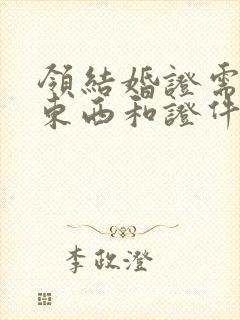 領結婚證需
東西和證件
李政澄